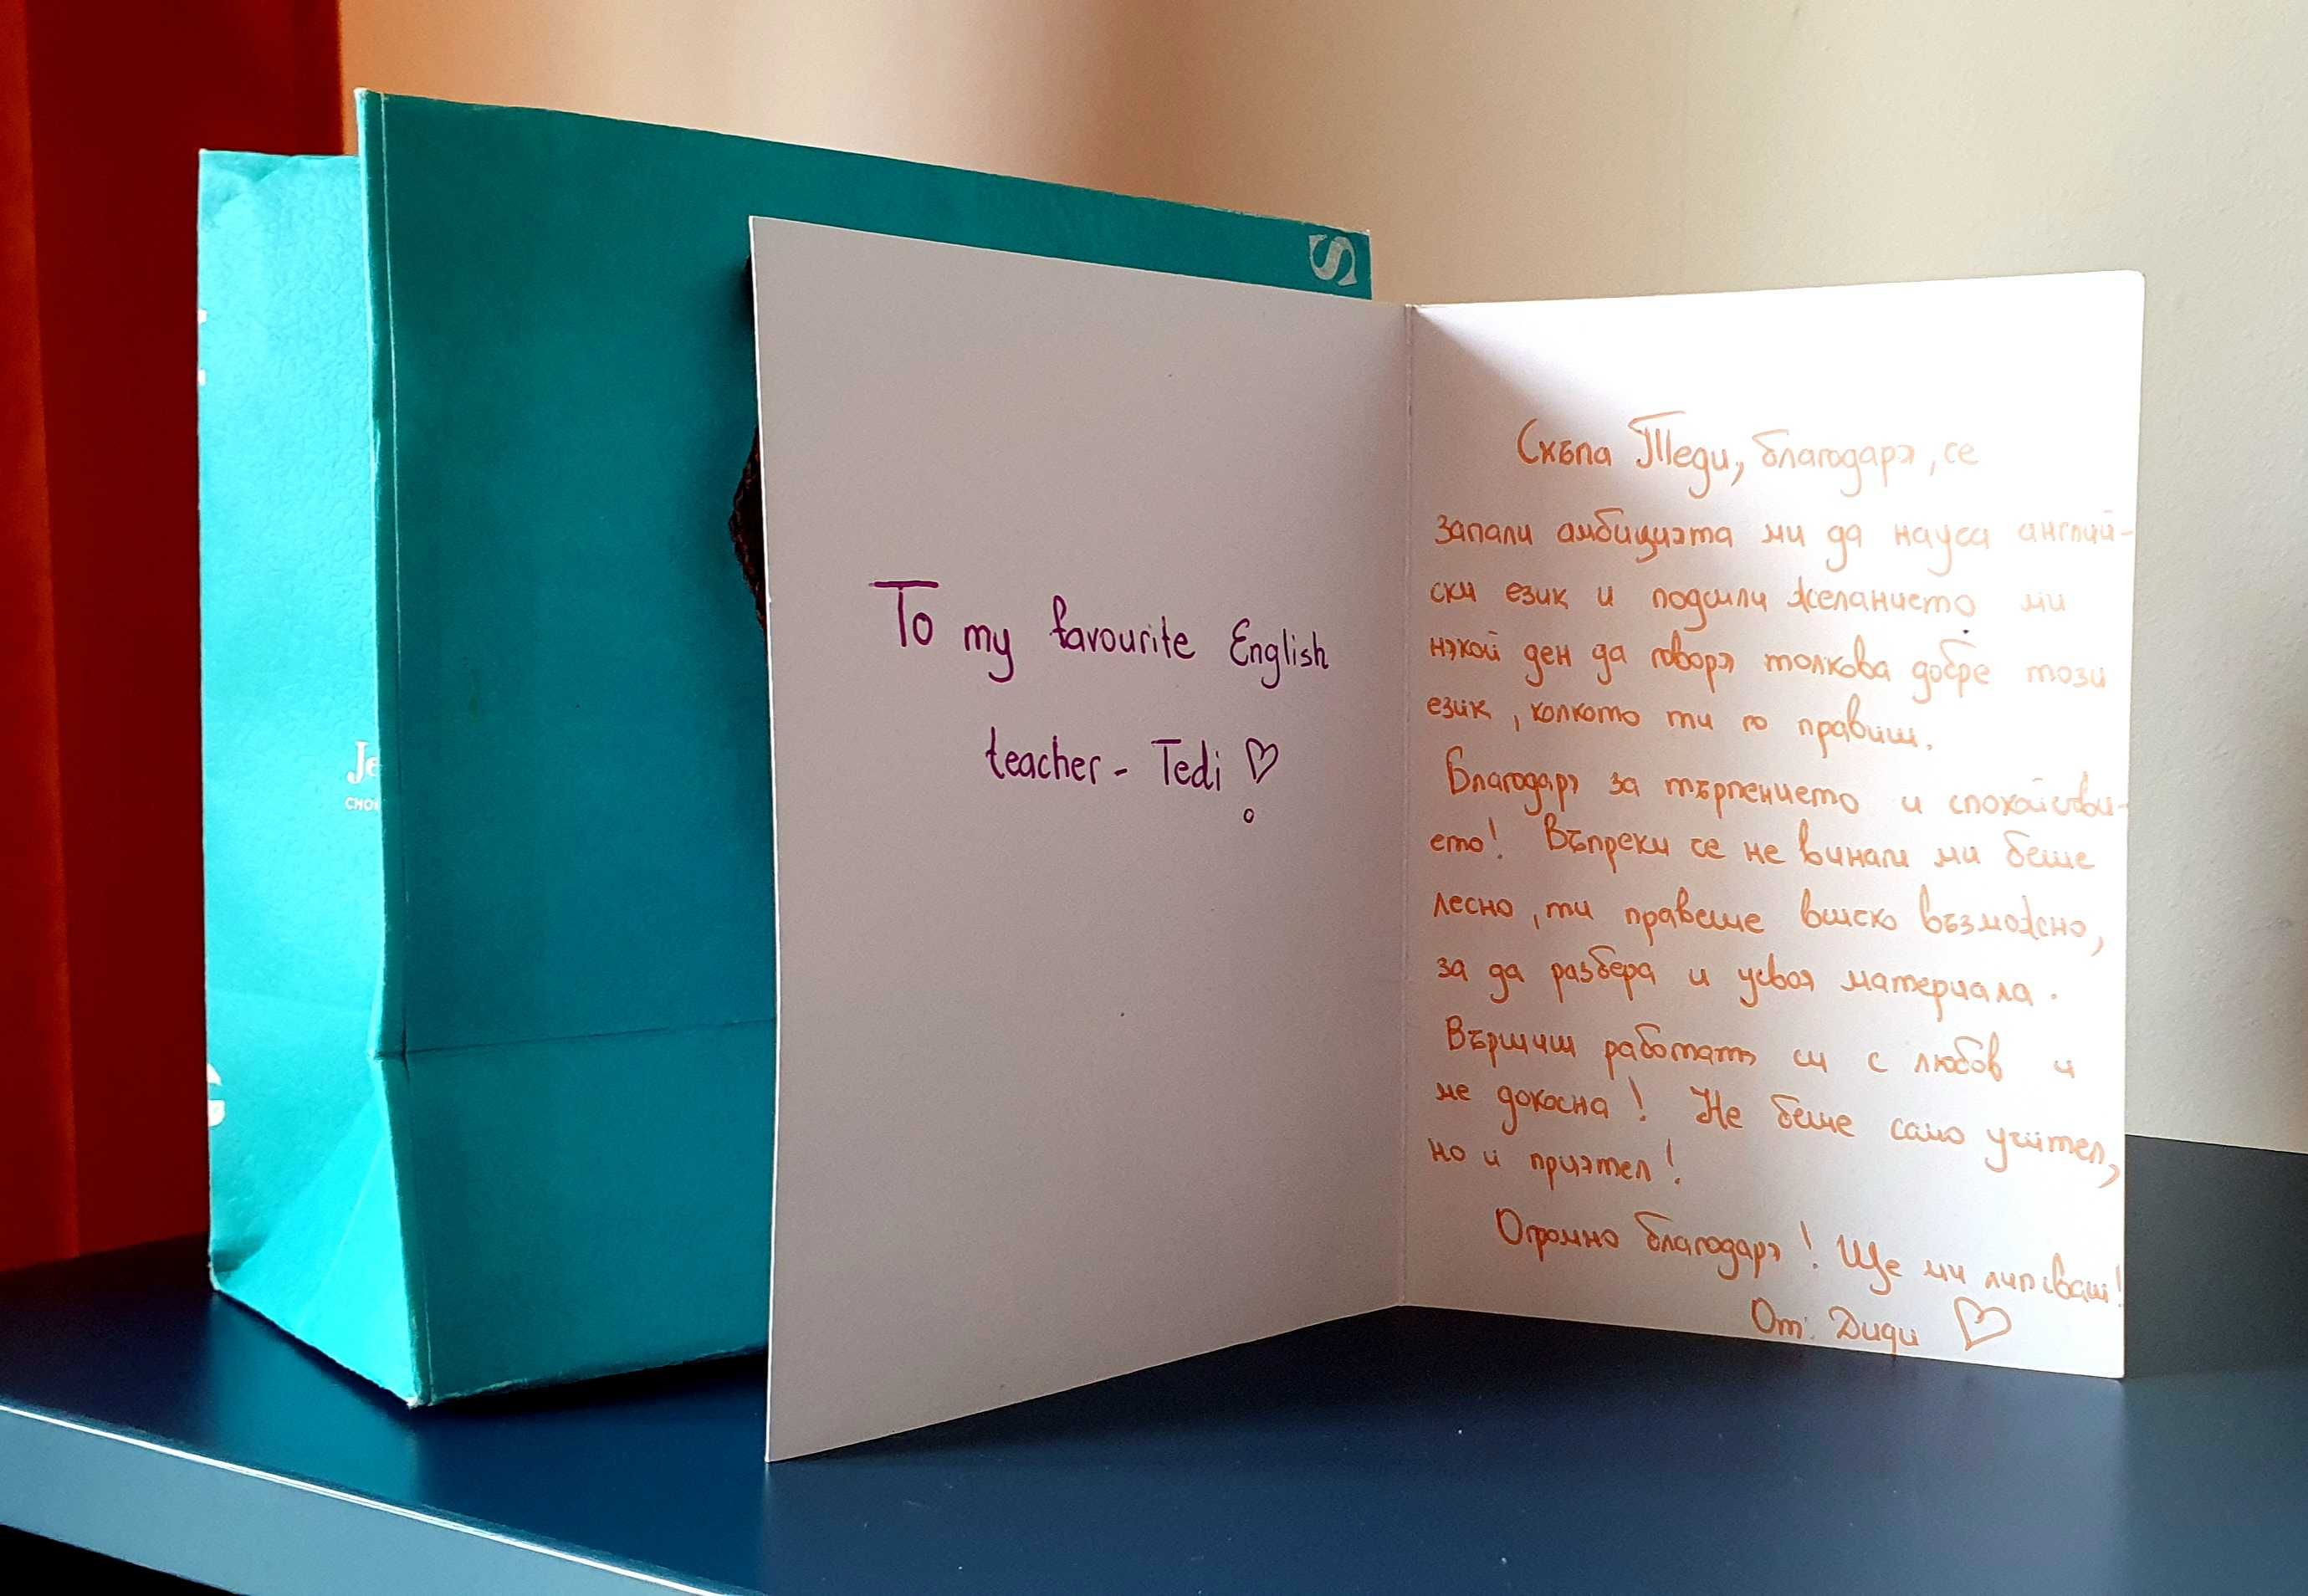 S
Je
CHO
To my favourite English
teacher - Tedi ♡
Скъпа Теди, благодаря, че
запали амбицията ми да науча англий-
ски език и подсили желанието ми
някой ден да говоря толкова добре този
език, колкото ти го правиш.
Благодаря за търпението и спокойстви-
ето! Въпреки че не винаги ми беше
лесно, ти правеше всичко възможно,
за да разбера и усвоя материала.
Вършиш работата си с любов и
ме докосна! Не беше само учител,
но и приятел!
Огромно благодаря! Ще ми липсваш!
От: Диди ♡